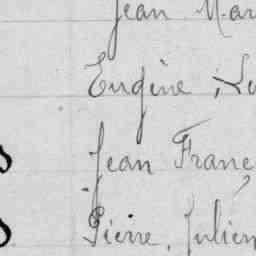 Jean Mar
Eugène, Lo
Jean Franc
Pierre, Julien